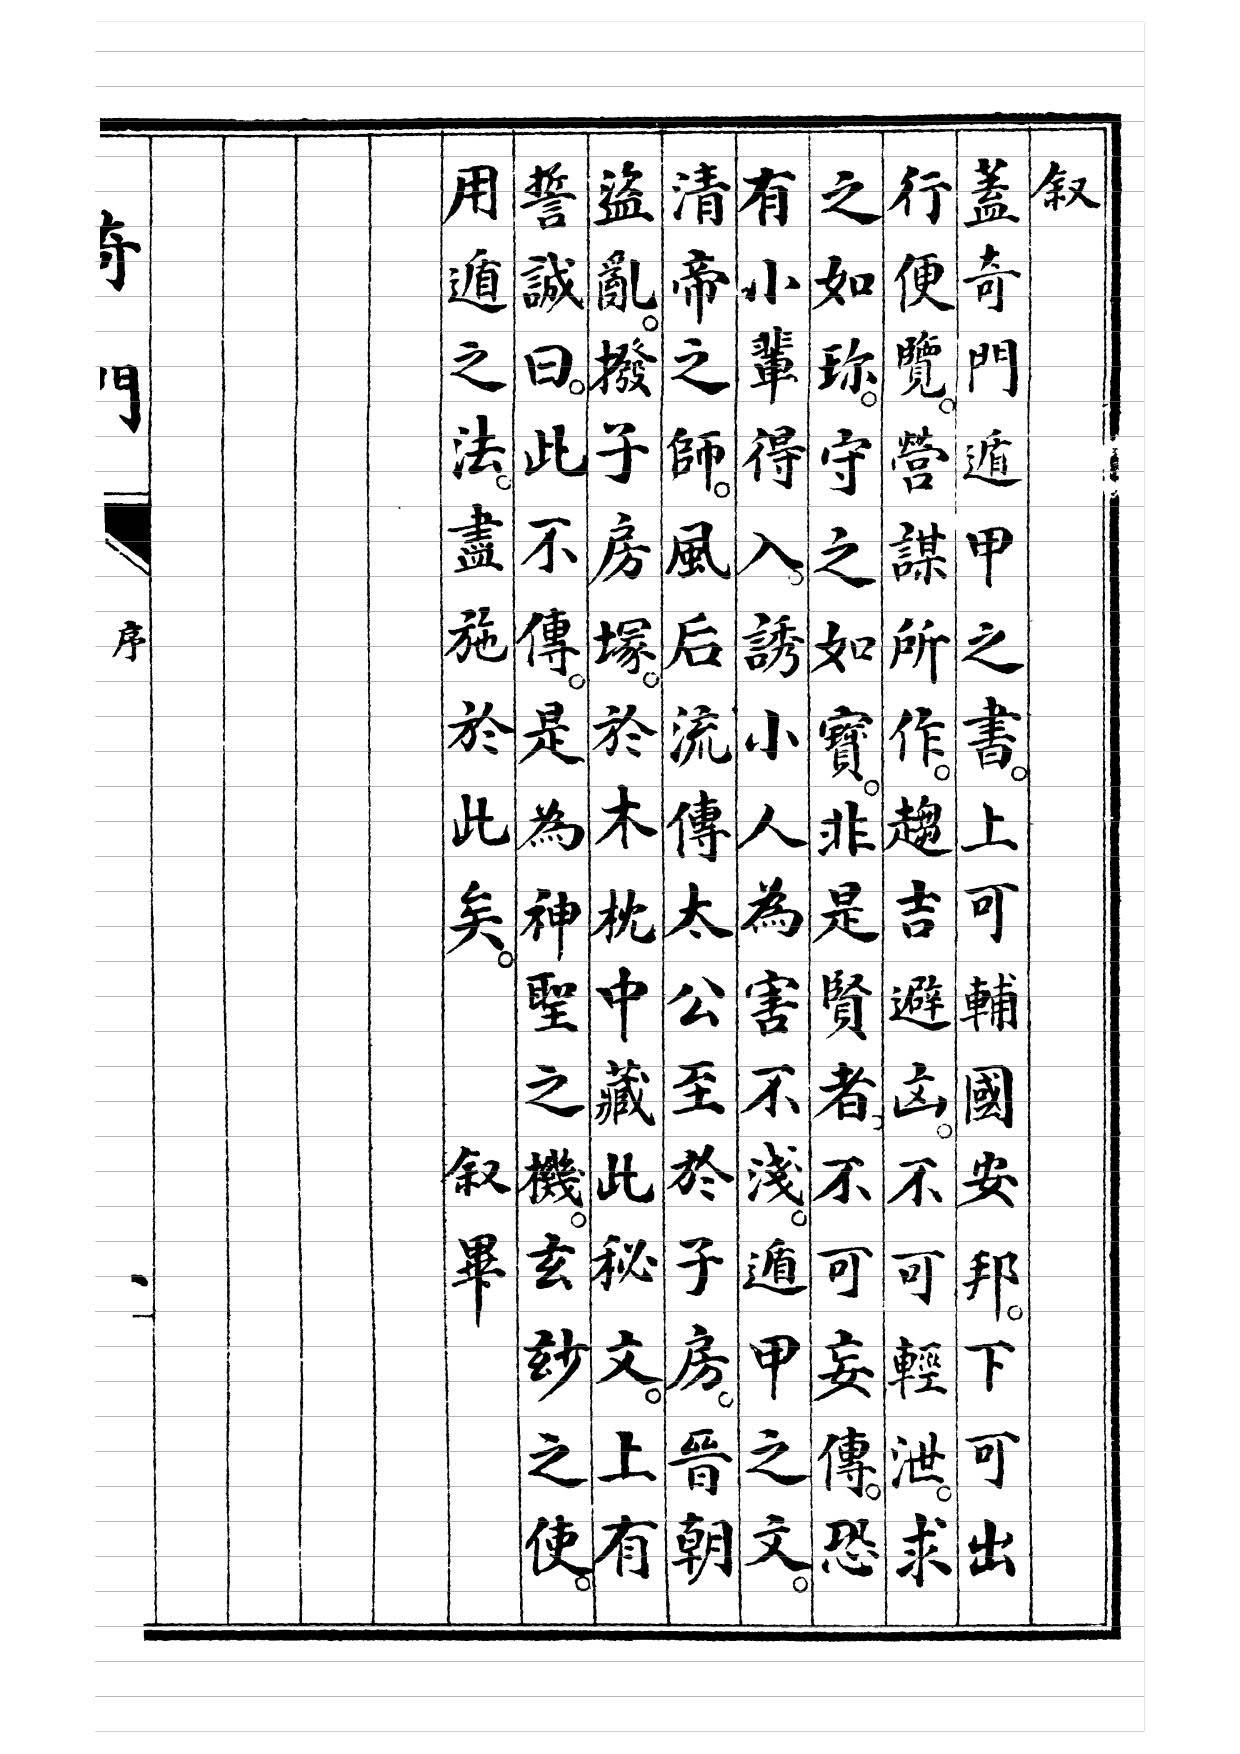 叙
蓋奇門遁甲之書。上可輔國安邦。下可出
行便覽。營謀所作。趨吉避凶。不可輕泄。求
之如珎。守之如寳。非是賢者。不可妄傳。恐
有小輩得入。誘小人為害不淺。遁甲之文。
清帝之師。風后流傳太公至於子房。晉朝
盜亂。撥子房塚。於木枕中藏此秘文。上有
誓誠曰。此不傳。是為神聖之機。玄玅之使。
用遁之法。盡施於此矣。
叙畢
奇門
序
一